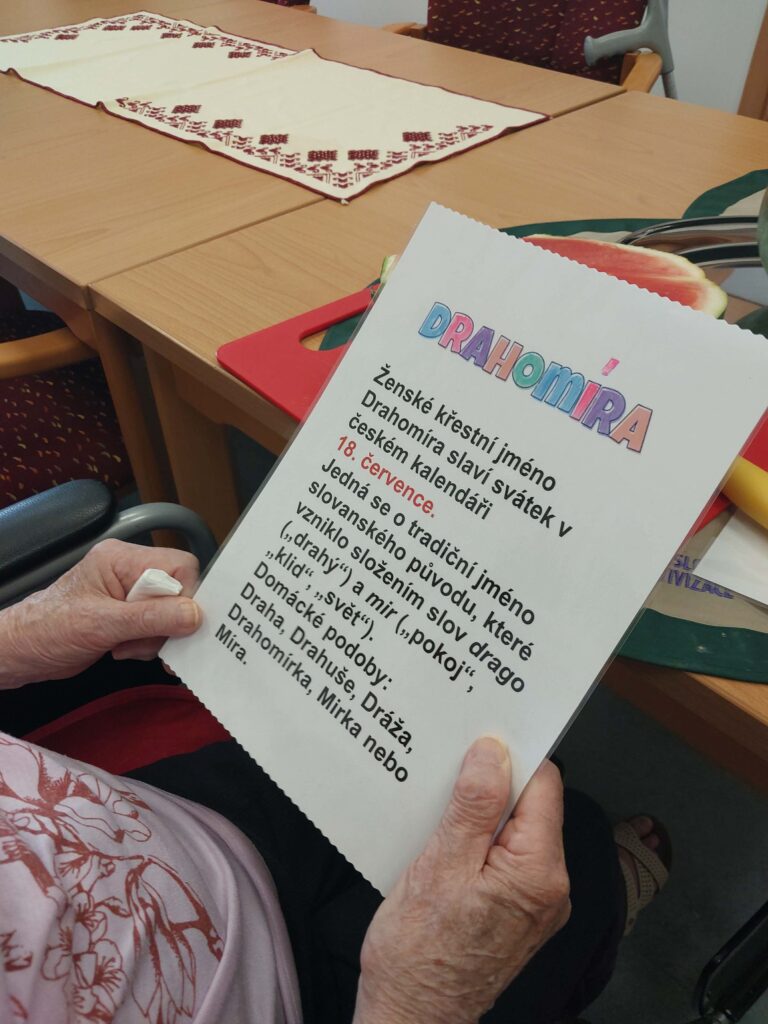 DRAHOMÍRA
Ženské křestní jméno
Drahomíra slaví svátek v
českém kalendáři
18. července.
Jedná se o tradiční jméno
slovanského původu, které
vzniklo složením slov drago
(„drahý“) a mir („pokoj“,
„klid“ „svět“).
Domácké podoby:
Draha, Drahuše, Dráža,
Drahomírka, Mirka nebo
Míra.